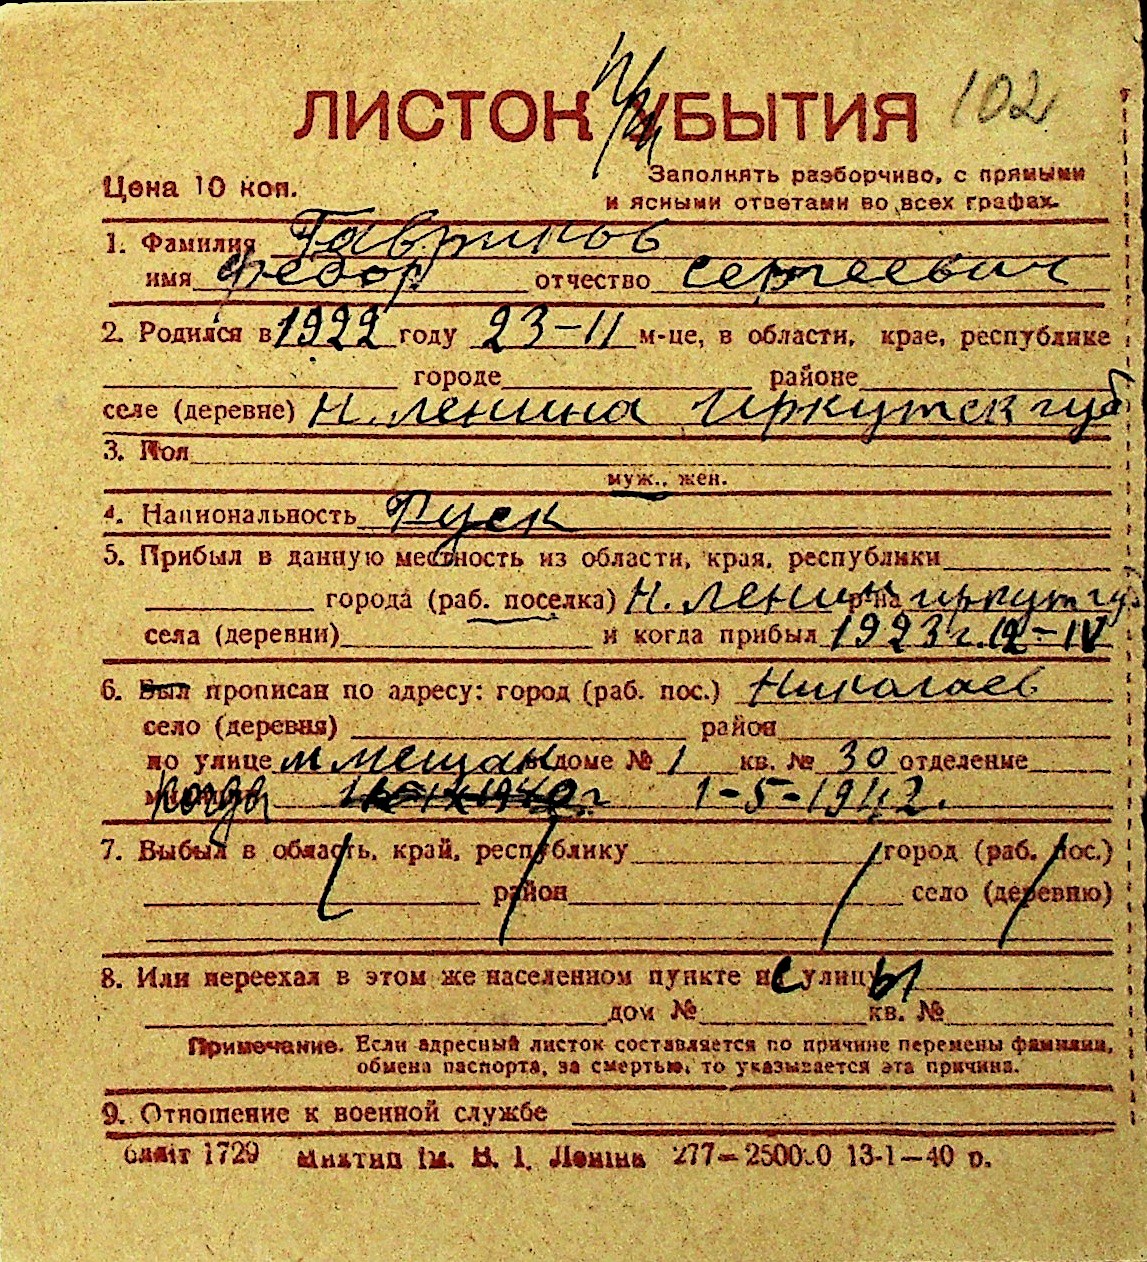 ЛИСТОК УБЫТИЯ 102
Цена 10 коп.
Заполнять разборчиво, с прямыми
и ясными ответами во всех графах.
1. Фамилия Гавриков
имя Федор отчество Сергеевич
2. Родился в 1922 году 23-11 м-це, в области, крае, республике
городе районе
селе (деревне) Н. Ленина Иркутск губ
3. Пол
муж., жен.
4. Национальность Руск
5. Прибыл в данную местность из области, края, республики
города (раб. поселка) Н. Ленин р-на иркут гу
села (деревни) и когда прибыл 1923 г. 12-IV
6. Был прописан по адресу: город (раб. пос.) Николаев
село (деревня) район
по улице м мещан доме № 1 кв. № 30 отделение
когда 1-5-1942.
7. Выбыл в область, край, республику город (раб. пос.)
район село (деревню)
8. Или переехал в этом же населенном пункте с улицы
дом № кв. №
Примечание. Если адресный листок составляется по причине перемены фамилии,
обмена паспорта, за смертью, то указывается эта причина.
9. Отношение к военной службе
Обліт 1729 Миктип ім. В. І. Леніна 277—250000 13-1—40 р.